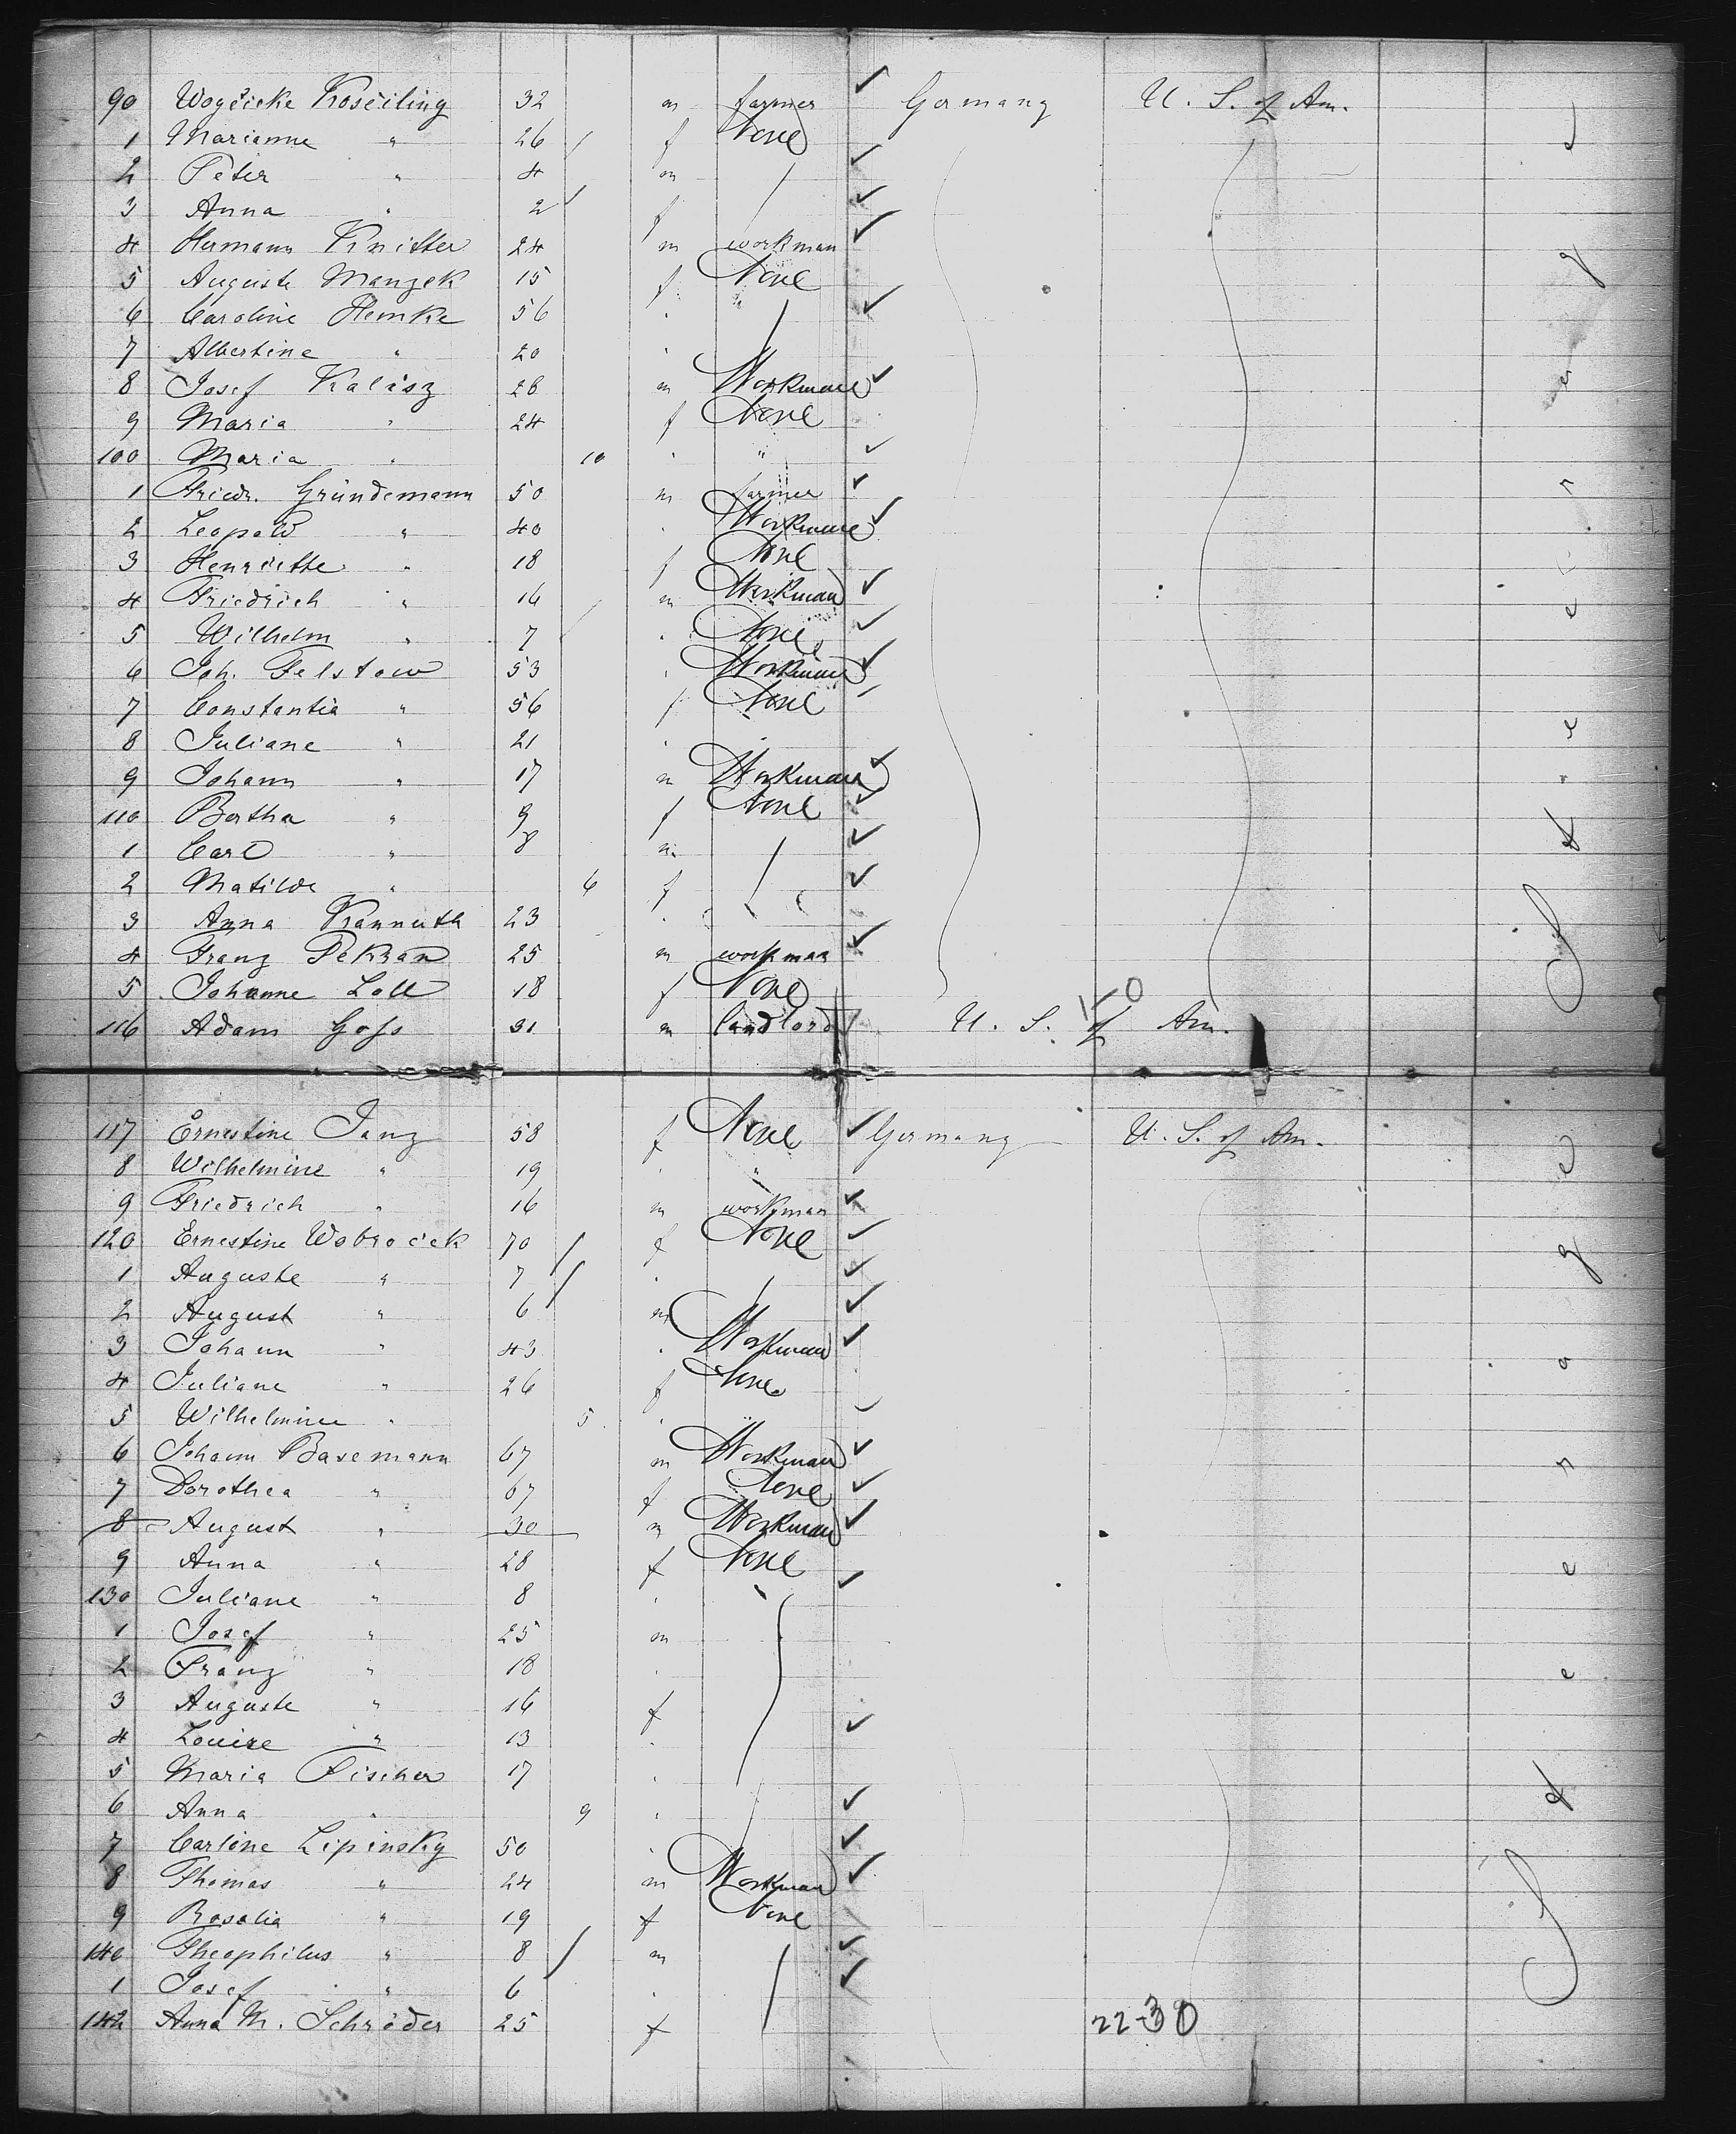 90 Wogcicke Kosciling 32 m farmer ✓ Germany U. S. of Am.
1 Marianne " 26 f None
2 Peter " 4 m ✓
3 Anna " 2 f ✓
4 Hermann Knitter 24 m workman ✓
5 Auguste Manzek 15 f None
6 Caroline Hemke 56 " ✓
7 Albertine " 20 "
8 Josef Kalisz 26 m Workman ✓
9 Maria " 24 f None
100 Maria " 10 " " ✓
1 Friedr. Gründemann 50 m farmer ✓
2 Leopold " 40 " Workman ✓
3 Henriette " 18 f None
4 Friedrich " 16 m Workman ✓
5 Wilhelm " 7 " None ✓
6 Joh. Felstow 53 " Workman ✓
7 Constantia " 56 f None
8 Juliane " 21 "
9 Johann " 17 m Workman ✓
110 Bertha " 9 f None ✓
1 Carl " 8 m ✓
2 Matilde " 6 f ✓
3 Anna Kannuth 23 "
4 Franz Pekran 25 m workman ✓
5 Johanne Loll 18 f None
116 Adam Goss 31 m landlord U. S. of Am.
150
Steerage
117 Ernestine Janz 58 f None ✓ Germany U. S. of Am.
8 Wilhelmine " 19 " "
9 Friedrich " 16 m workman ✓
120 Ernestine Wobrocek 70 f None ✓
1 Auguste " 7 " ✓
2 August " 6 m ✓
3 Johann " 43 " Workman ✓
4 Juliane " 26 f None
5 Wilhelmine " 5 "
6 Johann Basemann 67 m Workman ✓
7 Dorothea " 67 f None ✓
8 August " 30 m Workman ✓
9 Anna " 28 f None
130 Juliane " 8 " ✓
1 Josef " 25 m
2 Franz " 18 "
3 Auguste " 16 f
4 Louise " 13 " ✓
5 Maria Fischer 17 "
6 Anna " 9 " ✓
7 Carline Lipinsky 50 " ✓
8 Thomas " 24 m Workman ✓
9 Rosalia " 19 f None
140 Theophilus " 8 m ✓
1 Josef " 6 " ✓
142 Anna M. Schröder 25 f
22-30
Steerage